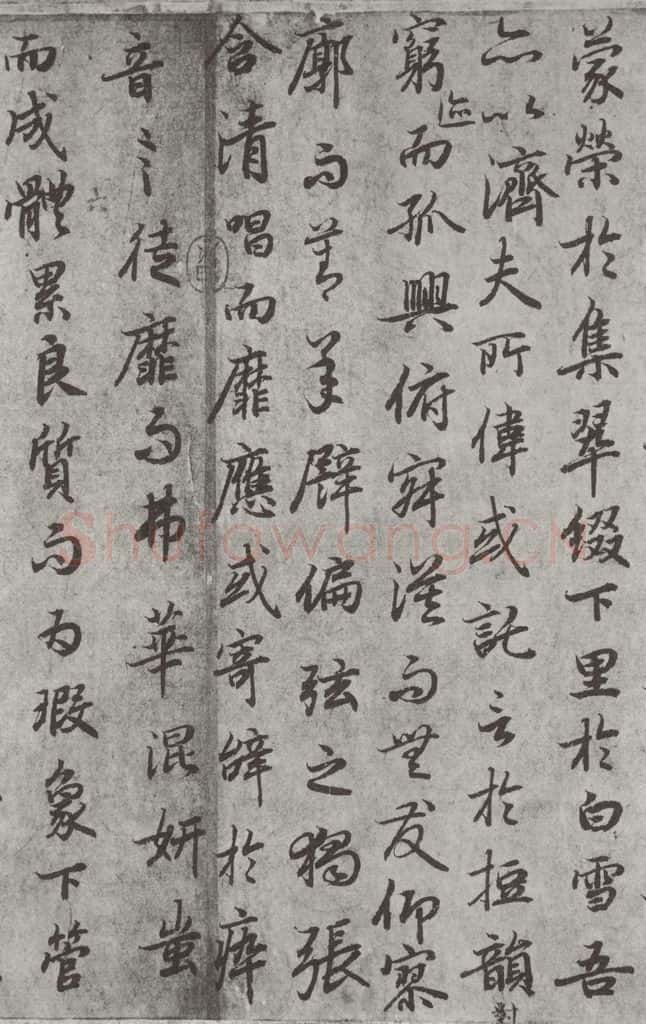 蒙榮於集翠綴下里於白雪吾
亦以濟夫所偉或託言於短韻對
窮迹而孤興俯寂漠而無友仰寥
廓而莫承譬偏弦之獨張
含清唱而靡應或寄辭於瘁
音言徒靡而弗華混妍蚩
六
而成體累良質而為瑕象下管
Shufawang.CN